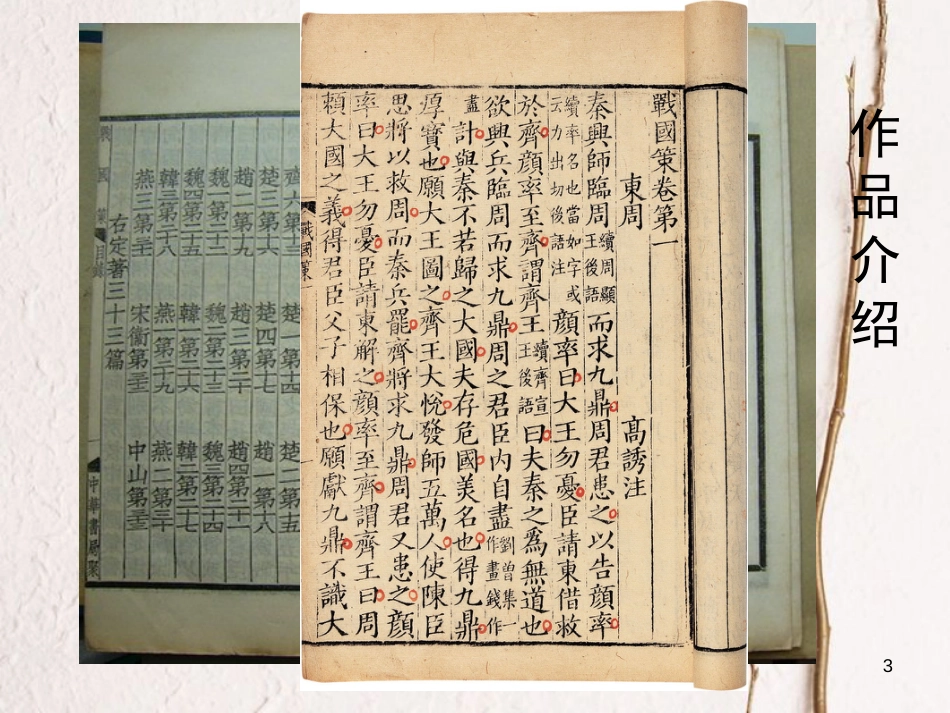 作品介绍
戰國策卷第一
東周 高誘注
秦興師臨周續周顯王後語而求九鼎周君患之以告顔率
續率名也當如字或云力出切後語注顔率曰大王勿憂臣請東借救
於齊顔率至齊謂齊王續齊宣王後語曰夫秦之爲無道也
欲興兵臨周而求九鼎周之君臣内自盡劉曾集一作畫錢作
盡計與秦不若歸之大國夫存危國美名也得九鼎
厚寳也願大王圖之齊王大悅發師五萬人使陳臣
思將以救周而秦兵罷齊將求九鼎周君又患之顔
率曰大王勿憂臣請東解之顔率至齊謂齊王曰周
賴大國之義得君臣父子相保也願獻九鼎不識大
戰國策一
齊六第十三 楚一第十四 楚二第十五
楚三第十六 楚四第十七 趙一第十八
趙二第十九 趙三第二十 趙四第二十一
魏一第二十二 魏二第二十三 魏三第二十四
魏四第二十五 韓一第二十六 韓二第二十七
韓三第二十八 燕一第二十九 燕二第三十
燕三第三十一 宋衞第三十二 中山第三十三
右定著三十三篇
戰國策 目錄 中華書局聚
3